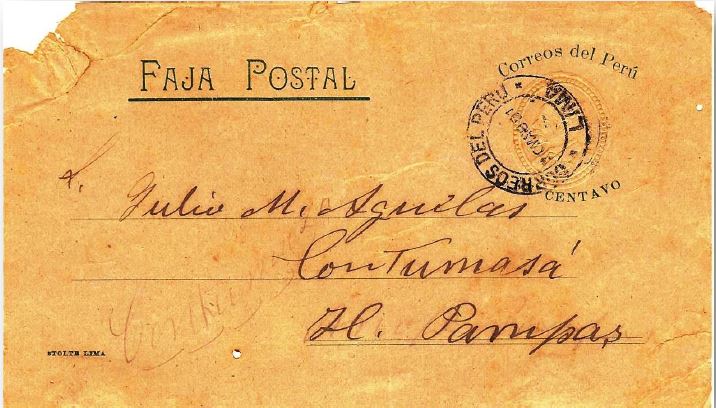 Correos del Perú
FAJA POSTAL
CORREOS DEL PERU * LIMA *
CENTAVO
Julio M. Aguilas
Contumasá
H. Pampas
STOLTE LIMA